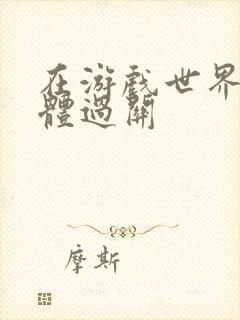 在游戲世界
體過關
摩斯